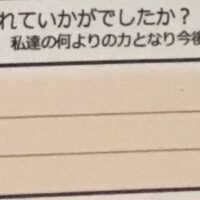 れていかがでしたか?
私達の何よりの力となり今後